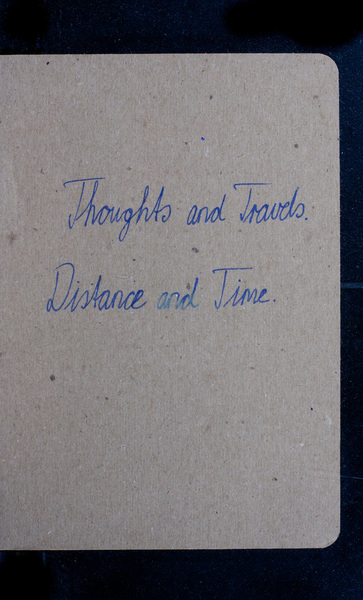 Thoughts and Travels.
Distance and Time.